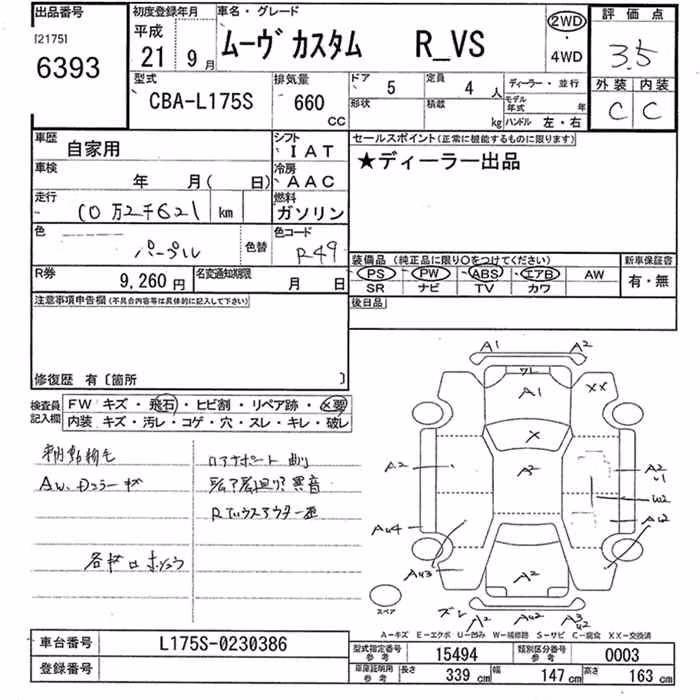 出品番号 初度登録年月 車名・グレード 評価点
[2175] 平成
6393 21年9月 ムーヴ カスタム R_VS 2WD・4WD 3.5
型式 排気量 ドア 5 定員 4人 ディーラー・並行 外装 内装
CBA-L175S 660 CC 形状 積載 kg モデル年式 年 ハンドル 左・右 C C
車歴 自家用 シフト IAT セールスポイント(正常に機能するものに限ります)
車検 年 月( 日) 冷房 AAC ★ディーラー出品
走行 10万2千621 km 燃料 ガソリン
色 パープル 色替 色コード R49
装備品(純正品に限り○をつけてください) 新車保証書
R券 9,260円 名変通知期限 月 日 PS PW ABS エアB AW 有・無
SR ナビ TV カワ
注意事項申告欄(不具合内容等は具体的に記入して下さい) 後日品
修復歴 有〔箇所 〕
検査員記入欄 FW キズ・飛石・ヒビ割・リペア跡・X要
内装 キズ・汚レ・コゲ・穴・スレ・キレ・破レ
A1 A2
A1 XX
X
A2 A2 A2
W2
AU4 AU2
AU3 A2
スペア A2 AU2
A-キズ E-エクボ U-凹み W-補修跡 S-サビ C-腐食 XX-交換済
車台番号 L175S-0230386 型式指定番号 参考 15494 類別区分番号 参考 0003
登録番号 車庫証明用 参考 長さ 339 cm 幅 147 cm 高さ 163 cm